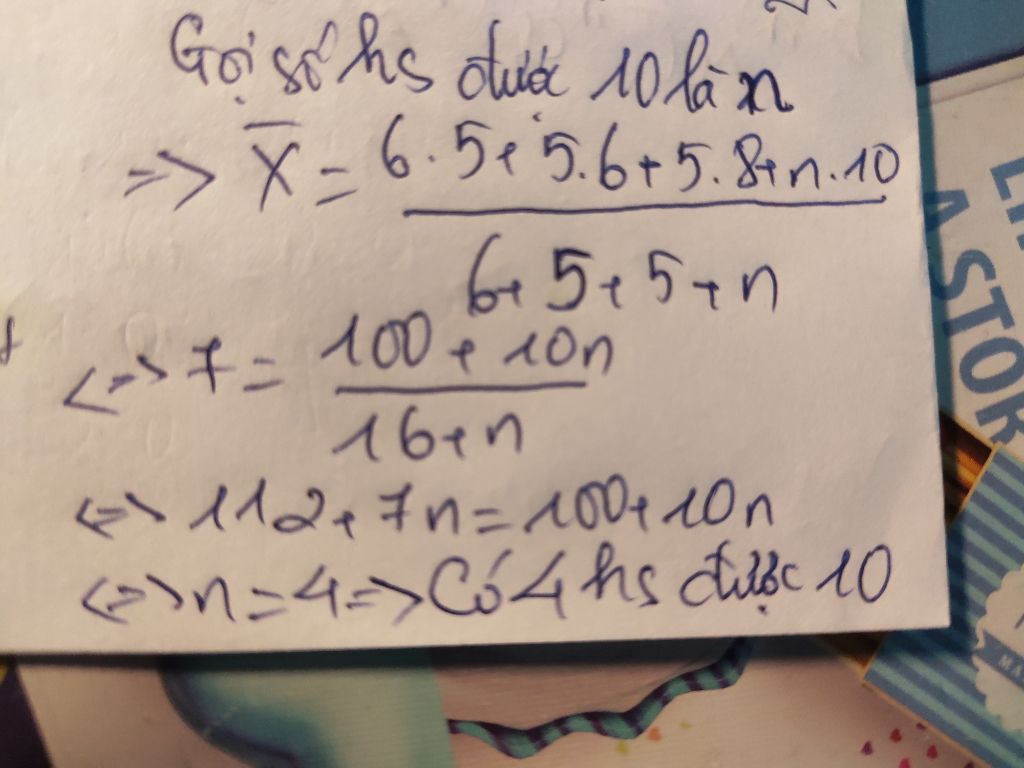 Gọi số hs được 10 là n
=> X̅ = 6.5+5.6+5.8+n.10
6+5+5+n
<=> 7 = 100+10n
16+n
<=> 112+7n=100+10n
<=> n=4=> Có 4 hs được 10
ASTOR